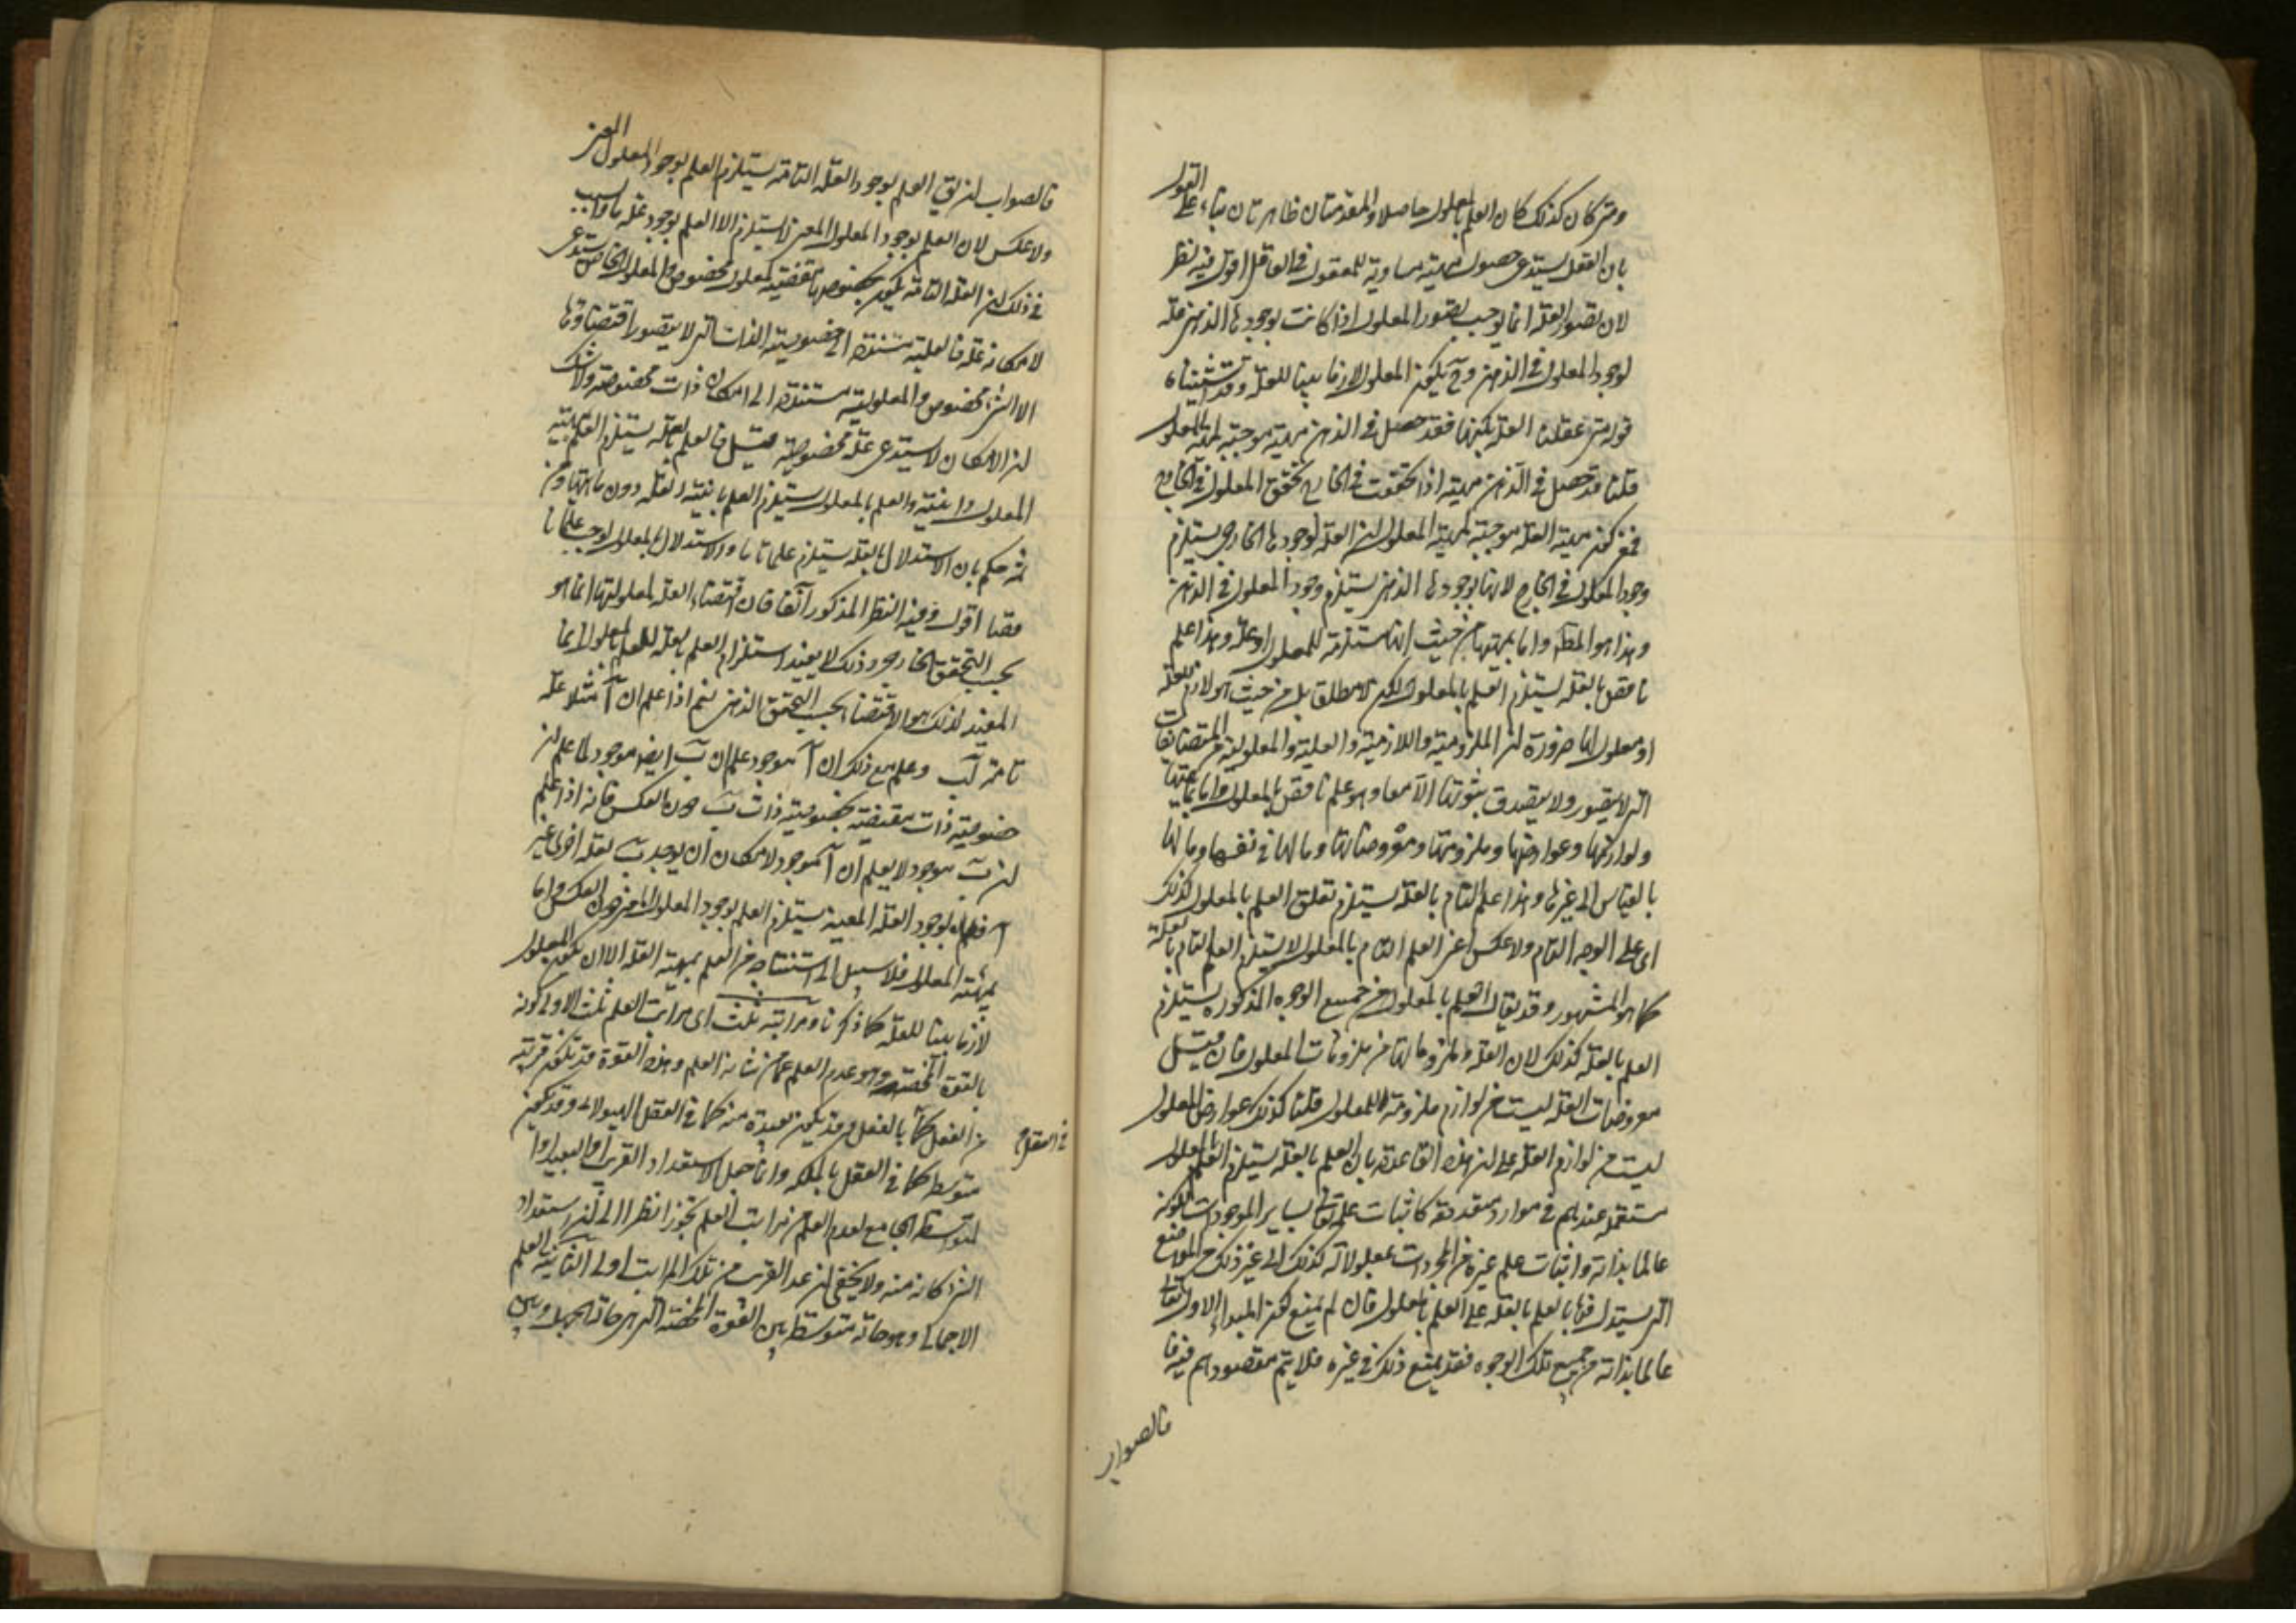 ومتى كان كذلك كان العلم بالمعلول حاصلا والمقدمتان ظاهرتان بناء على القول
بان التعقل يستدعى حصول مهية مساوية للمعقول فى العاقل اقول فيه نظر
لان تصور العلة انما يوجب تصور المعلول اذا كانت بوجودها الذهنى علة
لوجود المعلول فى الذهن وح يكون المعلول لازما بينا للعلة وقد
قوله متى عقلنا العلة بكنهها فقد حصل فى الذهن مهية موجبة لمهية المعلول
قلنا قد حصل فى الذهن مهية اذا تحققت فى الخارج تحقق المعلول فى الخارج
فمعنى كون مهية العلة موجبة لمهية المعلول ان العلة بوجودها الخارجى يستلزم
وجود المعلول فى الخارج لا انها بوجودها الذهنى يستلزم وجود المعلول فى الذهن
وهذا هو المط واما بمهيتها من حيث انها مستلزمة للمعلول او علة وهذا علم
ناقص بالعلة يستلزم العلم بالمعلول لكن لا مطلقا بل من حيث هو لازم للعلة
او معلول لها ضرورة ان الملزومية واللازمية والعلية والمعلولية من المتضايفات
التى لا يتصور ولا يصدق بثبوتها الا معا وهو علم ناقص بالمعلول واما بمهيتها
ولوازمها وعوارضها وملزوماتها ومعروضاتها وما لها فى نفسها وما لها
بالقياس الى غيرها وهذا علم تام بالعلة يستلزم تعلق العلم بالمعلول كذلك
اى على الوجه التام ولا عكس اعنى العلم التام بالمعلول لا يستلزم العلم التام بالعلة
كما هو المشهور وقد يقال العلم بالمعلول من جميع الوجوه المذكورة يستلزم
العلم بالعلة كذلك لان العلة وملزوماتها من ملزومات المعلول فان قيل
معروضات العلة ليست من لوازم ملزومة للمعلول قلنا كذلك عوارض المعلول
ليست من لوازم العلة على ان هذه القاعدة بان العلم بالعلة يستلزم العلم بالمعلول
مستعملة عندهم فى موارد متعددة كاثبات علمه تعالى بساير الموجودات لكونه
عالما بذاته واثبات علم غيره من المجردات بمعلولاته كذلك الى غير ذلك من المواضع
التى يستدل فيها بالعلم بالعلة على العلم بالمعلول فان لم يمنع كون المبداء الاول تعالى
عالما بذاته من جميع تلك الوجوه فقد يمنع ذلك فى غيره فلا يتم مقصودهم فيه فا
فالصواب
فالصواب ان يق العلم بوجود العلة التامة يستلزم العلم بوجود المعلول المعين
ولا عكس لان العلم بوجود المعلول المعين لا يستلزم الا العلم بوجود علة ما والسبب
فى ذلك ان العلة التامة يكون بخصوصها مقتضية لمعلول مخصوص والمعلول الخاص يستدعى
لامكانه علة فالعلية مستندة الى خصوصية الذات التى لا يتصور اقتضاؤها
الا لشئ مخصوص والمعلولية مستندة الى امكان ذات مخصوصة ولا شك
ان الامكان لا يستدعى علة مخصوصة قيل فالعلم بالعلة يستلزم العلم بمهية
المعلول وانيته والعلم بالمعلول يستلزم العلم بانية العلة دون ماهيتها ومن
ثم حكم بان الاستدلال بالعلة يستلزم علما تاما والاستدلال بالمعلول يوجب علما نا
قصا اقول وفيه النظر المذكور آنفا فان اقتضاء العلة لمعلولها انما هو
بحسب التحقق الخارجى وذلك لا يفيد استلزام العلم بالعلة للعلم بالمعلول انما
المفيد لذلك هو الاقتضاء بحسب التحقق الذهنى نعم اذا علم ان آ مثلا علة
تامة لب وعلم مع ذلك ان آ موجود علم ان ب ايضا موجود لما علم ان
خصوصية ذات مقتضية بخصوصية ذات ب دون العكس فانه اذا علم
ان ب موجود لا يعلم ان آ موجود لامكان ان يوجد ب بعلة اخرى غير
آ فالعلم بوجود العلة المعينة يستلزم العلم بوجود المعلول المعين دون العكس واما
مهية المعلول فلا سبيل الى استنتاجه من العلم بمهية العلة الا ان يكون المعلول
لازما بينا للعلة كما ذكرنا ومراتبه ثلث اى مراتب العلم ثلث الاولى كونه
بالقوة المحضة وهو عدم العلم عما من شانه العلم وهذه القوة قد تكون قريبة
من الفعل كما بالفعل وقد يكون بعيدة منه كما فى العقل الهيولانى وقد يكون
فى العقل
متوسطة كما فى العقل بالملكة وانما جعل الاستعداد القريب او البعيد او ا
لمتوسط الجامع لعدم العلم من مراتب العلم تجوزا نظرا الى ان استعداد
الشئ كانه منه ولا يخفى ان عد القريب من تلك المراتب اولى الثانية العلم
الاجمالى وهو حالة متوسطة بين القوة المحضة التى هى حالة الجهل وبين